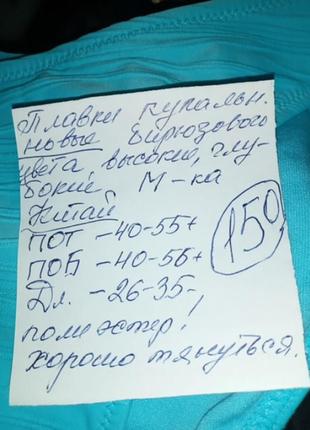 Плавки купальн.
новые бирюзового
цвета, высокие, глу-
бокие М-ка
Китай
ПОТ -40-55+
ПОБ -40-56+
150
Дл. -26-35-,
полиэстер,
хорошо тянуться.